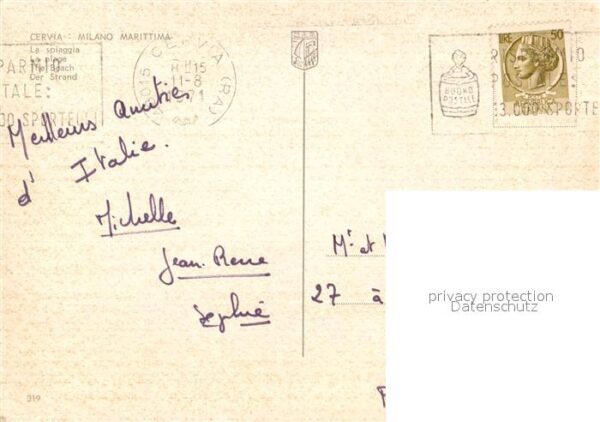 CERVIA - MILANO MARITTIMA
La spiaggia
La plage
The Beach
Der Strand
CERVIA (RA)
11-8
1971
PARMIO
TALE:
00 SPORTELLI
LIRE 50
BUONO
POSTALE
3.000 SPORTE
Meilleurs amitiés
d' Italie.
Michelle
Jean-Pierre
Sophie
Mr et
27 à
privacy protection
Datenschutz
319